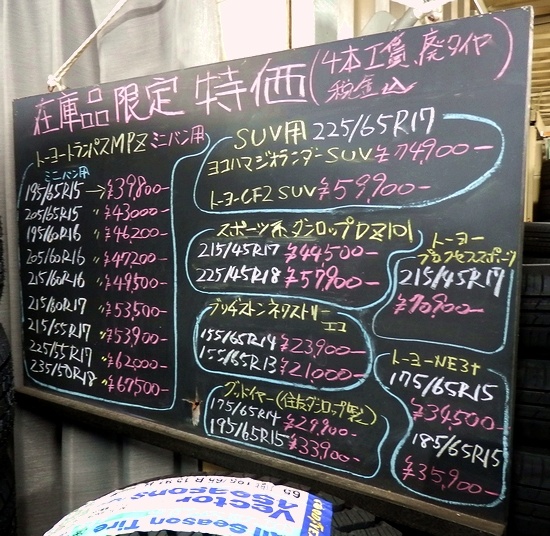 在庫品限定 特価(4本工賃、廃タイヤ
税金込
トーヨートランパスMPZ ミニバン用
ミニバン用
195/65R15→¥39,800-
205/65R15 〃 ¥43,000-
195/60R16 〃 ¥46,200
205/60R16 〃 ¥47,200
215/60R16 〃 ¥49,500-
215/60R17 〃 ¥53,500
215/55R17 〃 ¥53,900
225/55R17 〃 ¥62,000-
235/50R18 〃 ¥67,500
SUV用 225/65R17
ヨコハマジオランダーSUV ¥74,900-
トーヨーCF2SUV ¥59,900-
スポーツ系ダンロップDZ101
215/45R17 ¥44,500-
225/45R18 ¥57,900-
トーヨー
プロクセススポーツ
215/45R17
¥70,900-
ブリヂストンネクストリー
エコ
155/65R14 ¥23,900-
155/65R13 ¥21,000-
グットイヤー(住友ダンロップ製)
175/65R14 ¥29,900-
195/65R15 ¥33,900-
トーヨーNE3+
175/65R15
¥34,500-
185/65R15
¥35,900-
Vector
4Seasons
All Season Tire